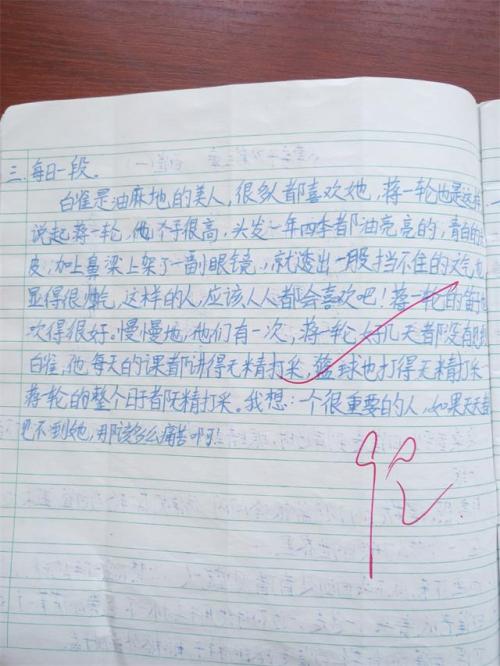 三、每日一段。
白雀是油麻地的美人，很多人都喜欢她，蒋一轮也是这样
说起蒋一轮，他个子很高，头发一年四季都油亮亮的，青白的
皮，加上鼻梁上架了一副眼镜，就透出一股挡不住的文气，
显得很帅气，这样的人，应该人人都会喜欢吧！蒋一轮的笛
吹得很好。慢慢地，他们有一次，蒋一轮好几天都没有
白雀，他每天的课都讲得无精打采，篮球也打得无精打采
蒋轮的整个日子都无精打采。我想：一个很重要的人，如果天天
见不到她，那该多么痛苦啊！
优